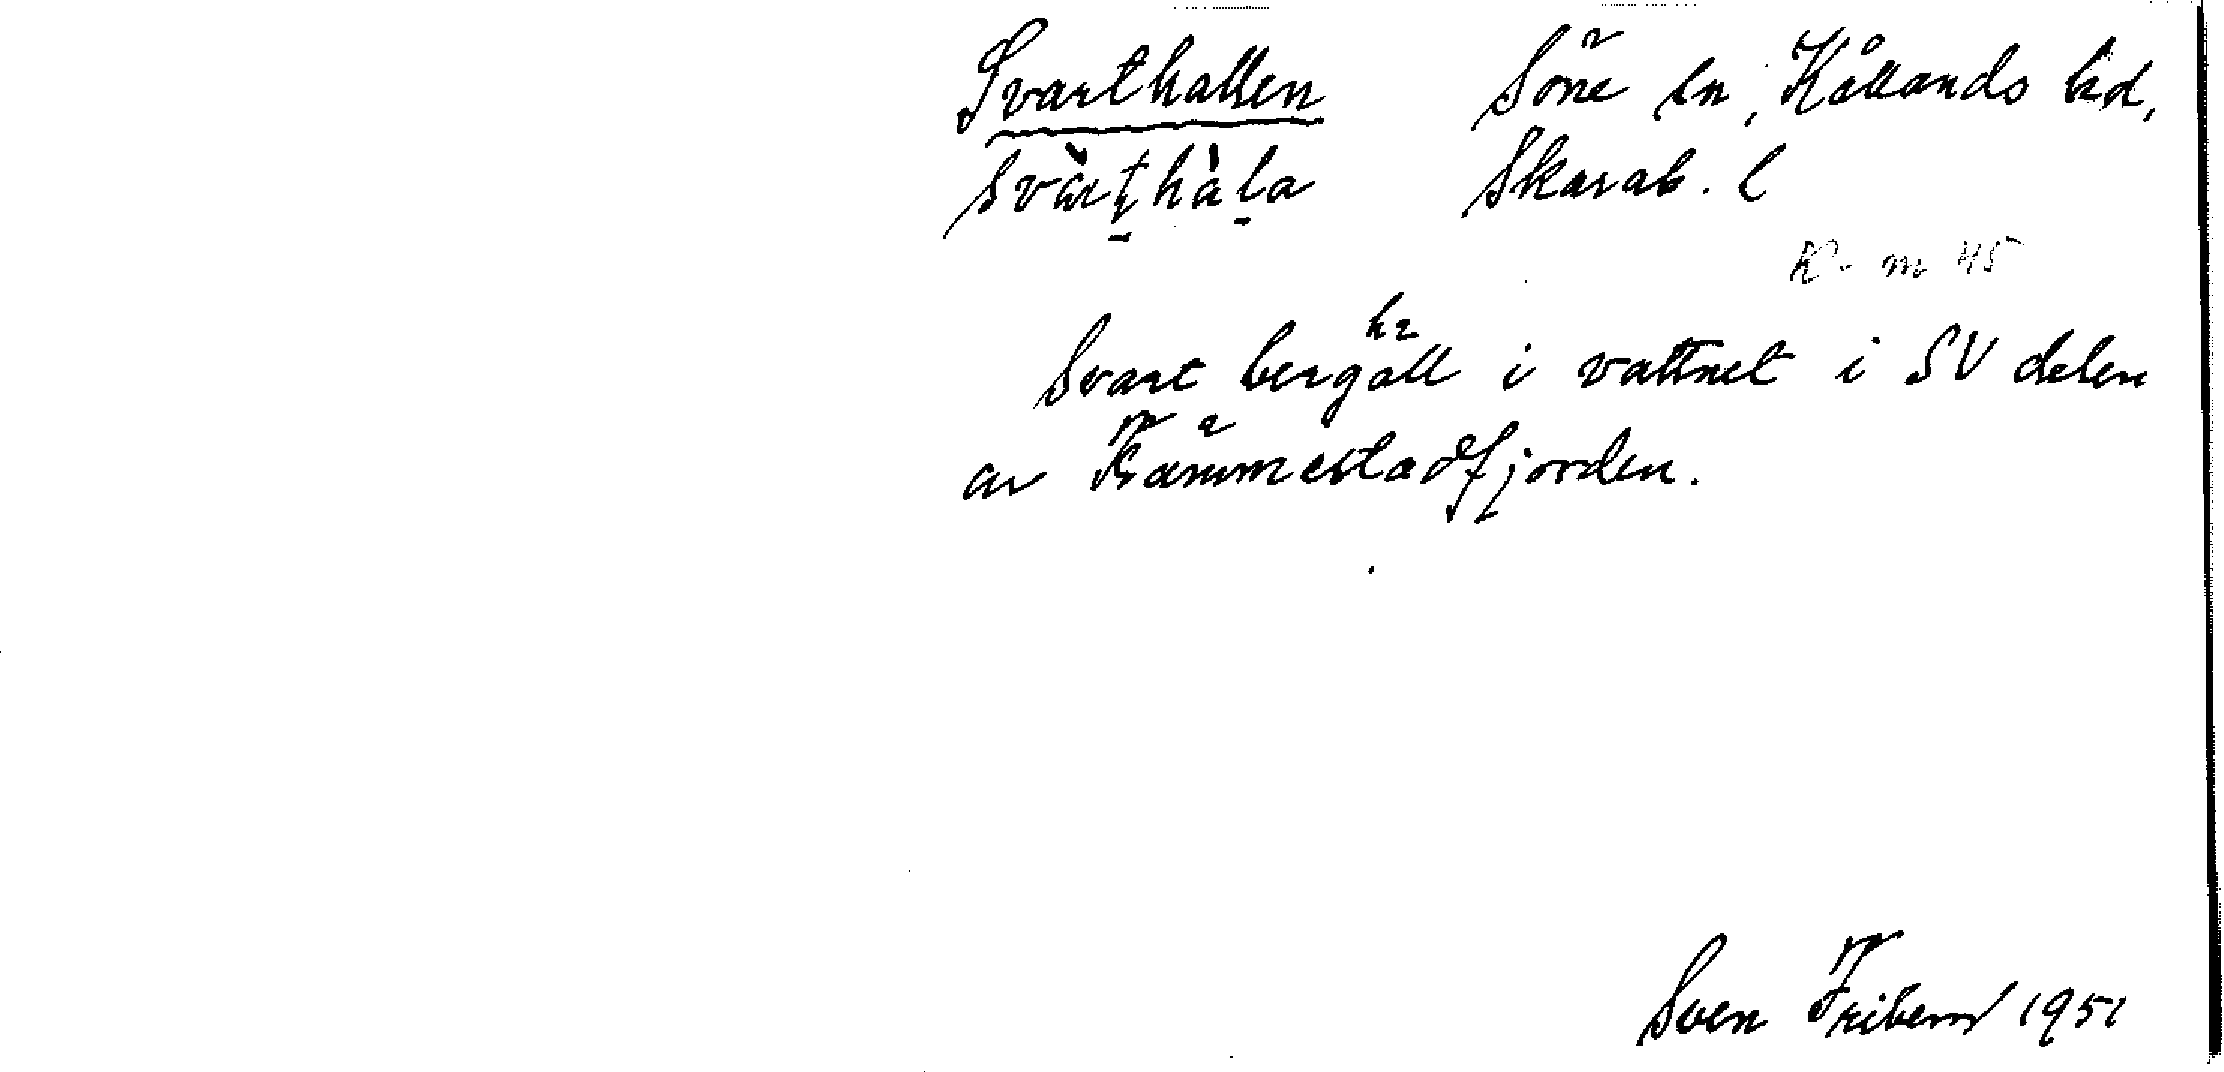 Svarthallen Söne sn, Kållands hd,
svàrt̠hàl̠a Skarab. l
K - m 45
Svart berghäll i vattnet i SV delen
av Främmestadfjorden.
Sven Friberg 1951